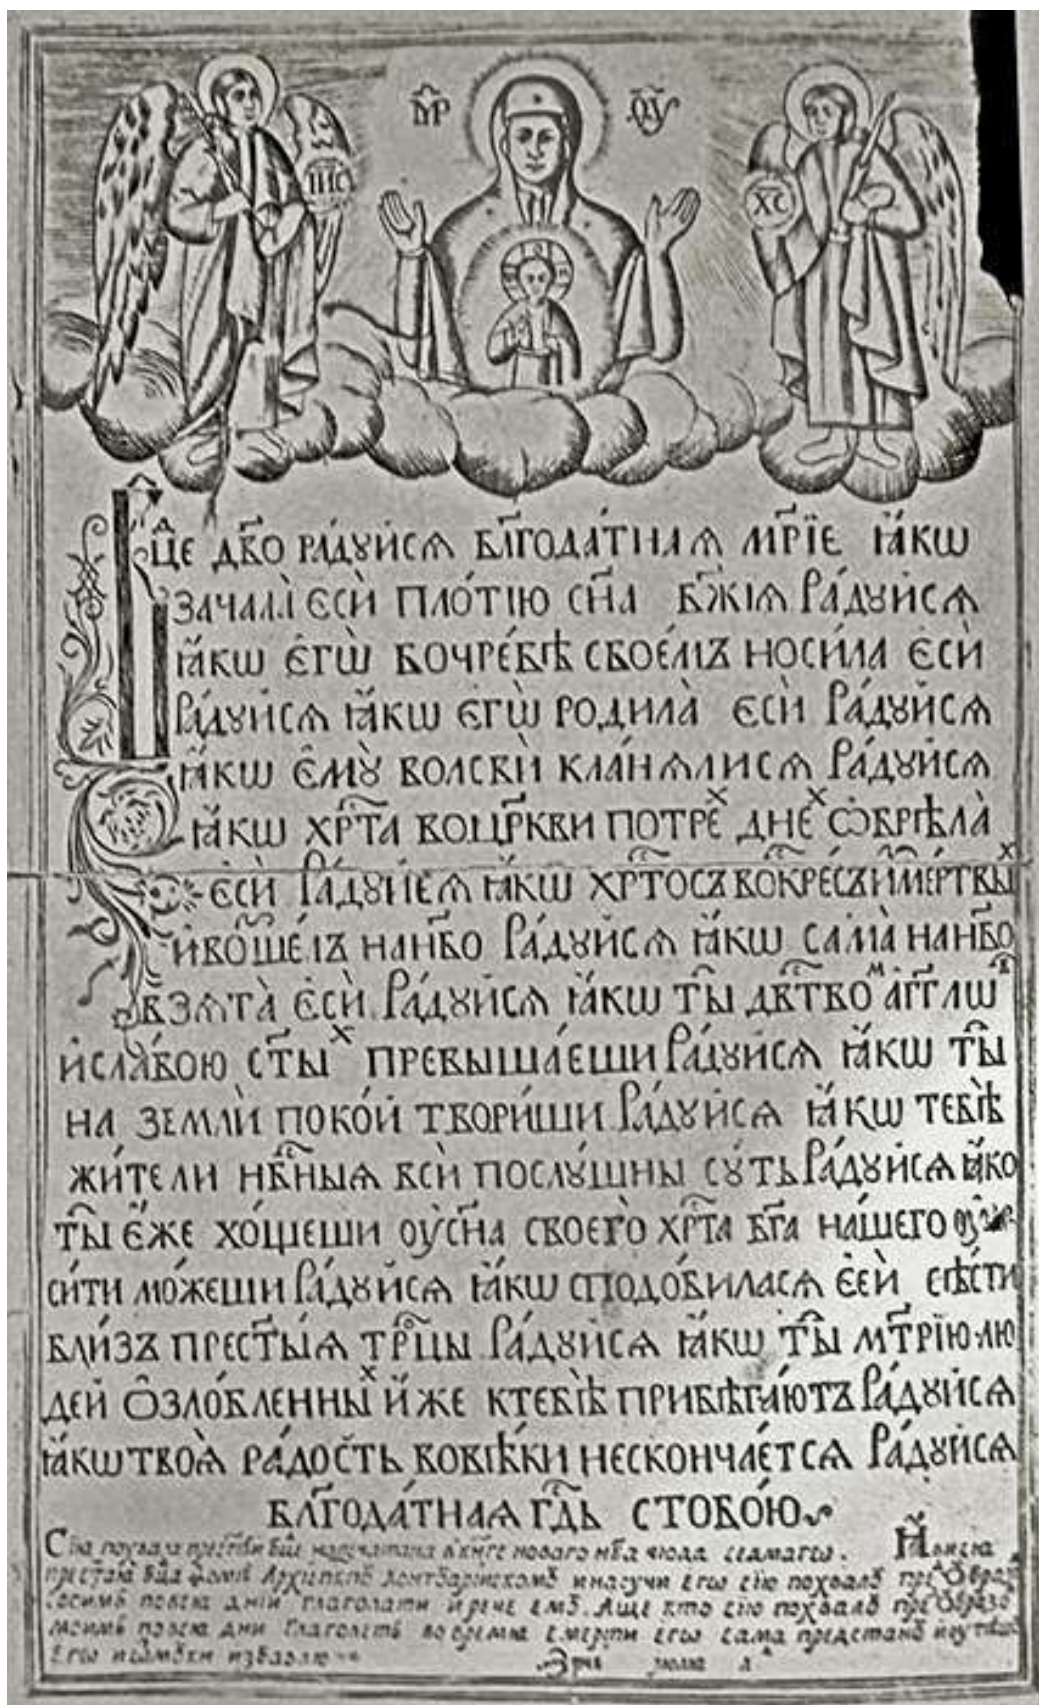 М҃Р Ѳ҃У
І҃ИС
Х҃С
Бц҃е дв҃о ра́дꙋйсѧ бл҃года́тнаѧ мр҃їе ꙗ҆́кѡ
зачала̀ є҆сѝ пло́тїю сн҃а бж҃їѧ Ра́дꙋйсѧ
ꙗ҆́кѡ є҆гѡ̀ вочре́вѣ своє́мъ носи́ла є҆сѝ
Ра́дꙋйсѧ ꙗ҆́кѡ є҆гѡ̀ родила̀ є҆сѝ Ра́дꙋйсѧ
ꙗ҆́кѡ є҆мꙋ̀ волсвѝ кла́нѧлисѧ Ра́дꙋйсѧ
ꙗ҆́кѡ хрⷭ҇та воцр҃кви потреⷯ днеⷯ ѡ҆брѣла̀
є҆сѝ Ра́дꙋйсѧ ꙗ҆́кѡ хрⷭ҇тосъ вокре́съ и҆ме́ртвыⷯ
и҆воше́лъ нанб҃о Ра́дꙋйсѧ ꙗ҆́кѡ сама̀ нанб҃о
взѧта̀ є҆сѝ Ра́дꙋйсѧ ꙗ҆́кѡ ты̀ двⷭ҇твоⷨ а҆́гг҃лѡⷡ
и҆сла́вою ст҃ыⷯ превыша́еши Ра́дꙋйсѧ ꙗ҆́кѡ ты̀
на землѝ поко́й твори́ши Ра́дꙋйсѧ ꙗ҆́кѡ тебѣ̀
жи́тели нбⷭ҇ныѧ всѝ послꙋ́шны сꙋ́ть Ра́дꙋйсѧ ꙗ҆́ко
ты̀ є҆́же хо́щеши оу҆сн҃а своего̀ хрⷭ҇та бг҃а на́шего
си́ти мо́жеши Ра́дꙋйсѧ ꙗ҆́кѡ сподо́биласѧ є҆сѝ сѣ́сти
бли́зъ прест҃ы́ѧ трⷪ҇цы Ра́дꙋйсѧ ꙗ҆́кѡ ты̀ мт҃рїю лю
дей ѡ҆зло́бленныⷯ и҆́же ктебѣ̀ прибѣга́ютъ Ра́дꙋйсѧ
ꙗ҆́кѡ твоѧ̀ ра́дость вовѣ́ки нескончае́тсѧ Ра́дꙋйсѧ
бл҃года́тнаѧ гдⷭ҇ь стобо́ю
Сїѧ похвала прест҃ѣи бц҃е напечатана вкнге новаго нб҃а чюда седмагѡ.
прест҃аѧ бц҃а ѳомѣ Архїепⷭ҇пꙋ и научи его сїю похвалꙋ преⷣ ѡбраⷥ
сосимъ повсѧ днїи глаголати и рече емꙋ. Аще кто сїю похвалꙋ преⷣ ѡбразо
моимъ повсѧ дни глаголетъ во время смерти его сама предстанꙋ
Его